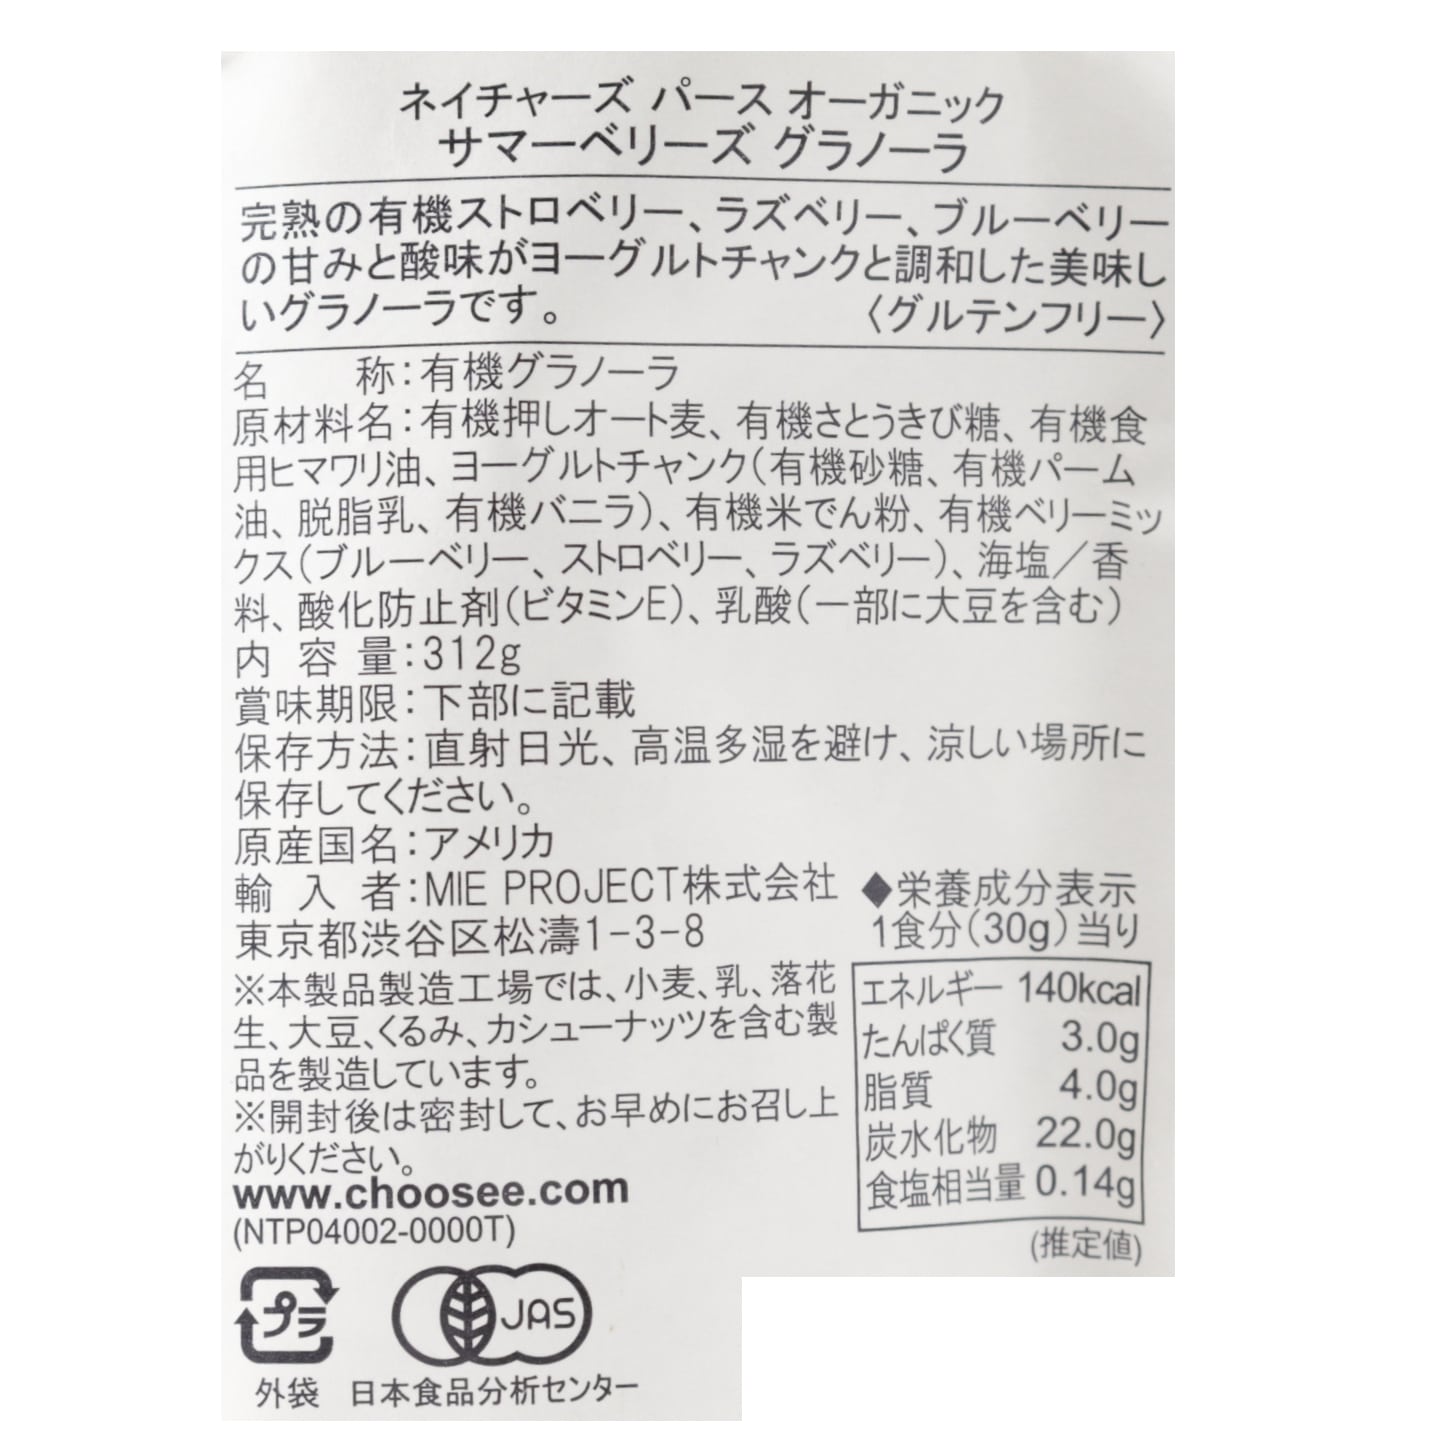 ネイチャーズ パース オーガニック
サマーベリーズ グラノーラ
完熟の有機ストロベリー、ラズベリー、ブルーベリー
の甘みと酸味がヨーグルトチャンクと調和した美味し
いグラノーラです。 〈グルテンフリー〉
名 称：有機グラノーラ
原材料名：有機押しオート麦、有機さとうきび糖、有機食
用ヒマワリ油、ヨーグルトチャンク（有機砂糖、有機パーム
油、脱脂乳、有機バニラ）、有機米でん粉、有機ベリーミッ
クス（ブルーベリー、ストロベリー、ラズベリー）、海塩／香
料、酸化防止剤（ビタミンE）、乳酸（一部に大豆を含む）
内 容 量：312g
賞味期限：下部に記載
保存方法：直射日光、高温多湿を避け、涼しい場所に
保存してください。
原産国名：アメリカ
輸 入 者：MIE PROJECT株式会社
東京都渋谷区松濤1-3-8
※本製品製造工場では、小麦、乳、落花
生、大豆、くるみ、カシューナッツを含む製
品を製造しています。
※開封後は密封して、お早めにお召し上
がりください。
www.choosee.com
(NTP04002-0000T)
◆栄養成分表示
1食分（30g）当り
エネルギー 140kcal
たんぱく質 3.0g
脂質 4.0g
炭水化物 22.0g
食塩相当量 0.14g
(推定値)
プラ
JAS
外袋 日本食品分析センター